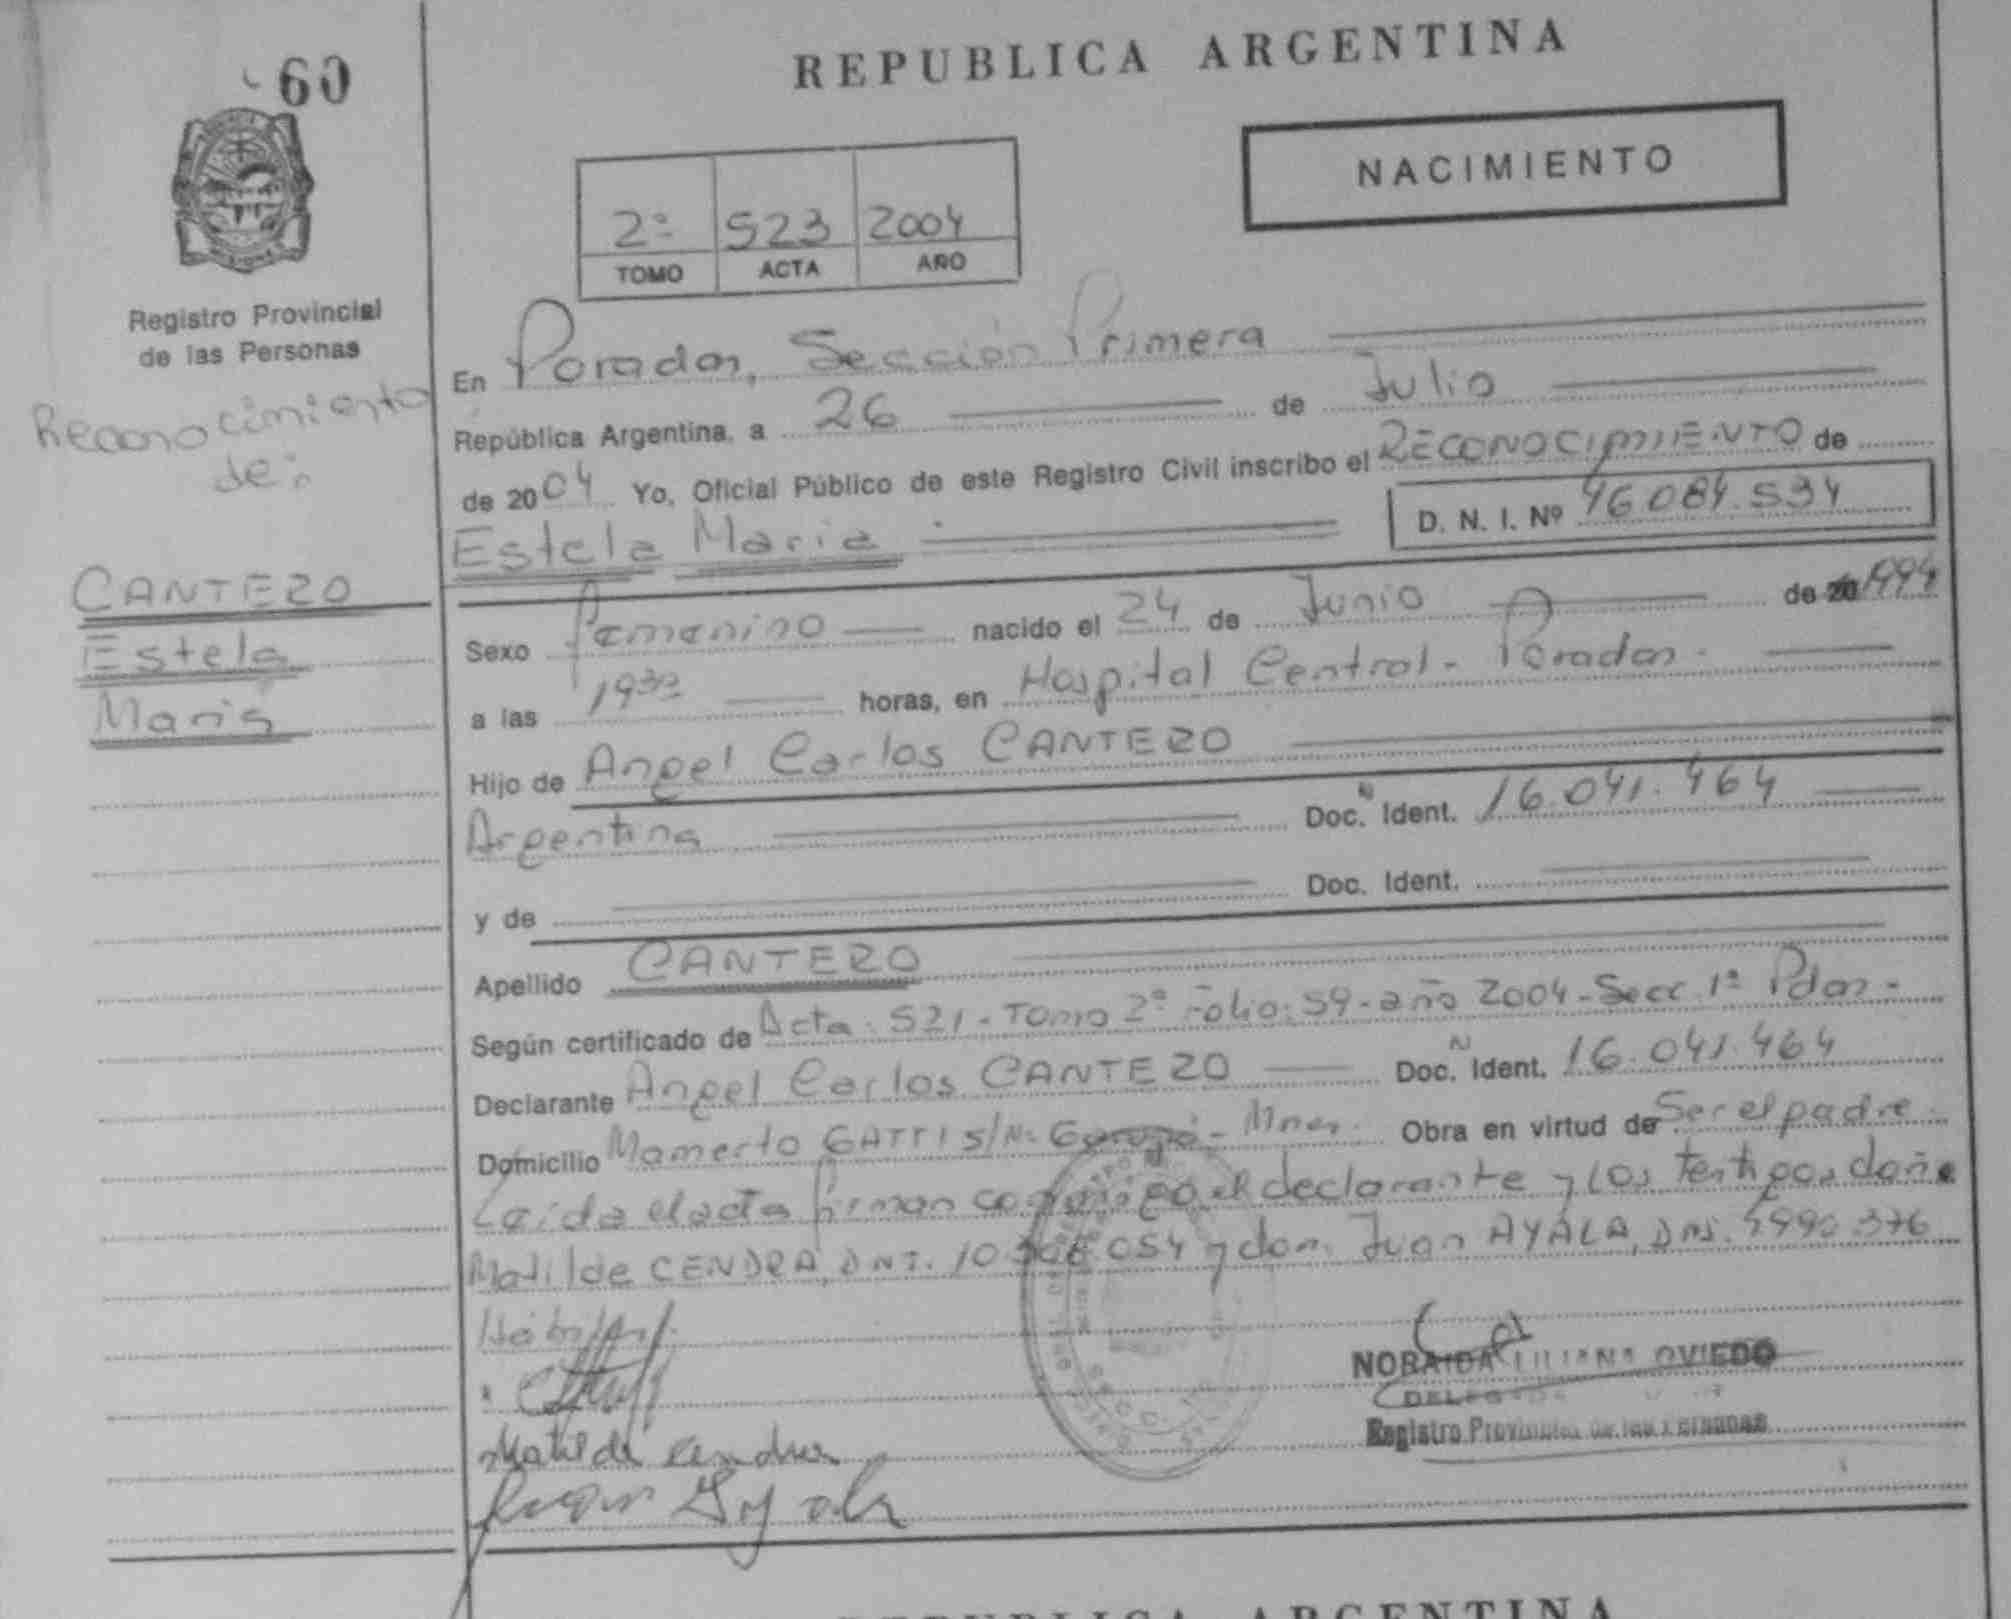 60
REPUBLICA ARGENTINA
NACIMIENTO
2º 523 2004
TOMO ACTA AÑO
Registro Provincial
de las Personas
Reconocimiento
de:
CANTERO
Estela
Maria
En Posadas, Sección Primera
República Argentina, a 26 de Julio
de 2004 Yo, Oficial Público de este Registro Civil inscribo el RECONOCIMIENTO de
Estela Maria D. N. I. Nº 46.084.534
Sexo Femenino nacido el 24 de Junio de 1994
a las 19 horas, en Hospital Central - Posadas -
Hijo de Angel Carlos CANTERO
Argentina Doc. Ident. 16.041.464
y de Doc. Ident.
Apellido CANTERO
Según certificado de Acta: 521 - Tomo 2º Folio: 59 - año 2004 - Secc. 1ª Pdas -
Declarante Angel Carlos CANTERO Doc. Ident. 16.041.464
Domicilio Mamerto GATTI S/N: Garupá - Mnes. Obra en virtud de Ser el padre.
Leida el acta firman conmigo el declarante y los testigos doña
Matilde CENDRA, DNI. 10 054 y don Juan AYALA, DNI.
Matilde Cendra
Juan Ayala
NORAIDA LILIANA OVIEDO
Registro Provincial de las Personas
REPUBLICA ARGENTINA